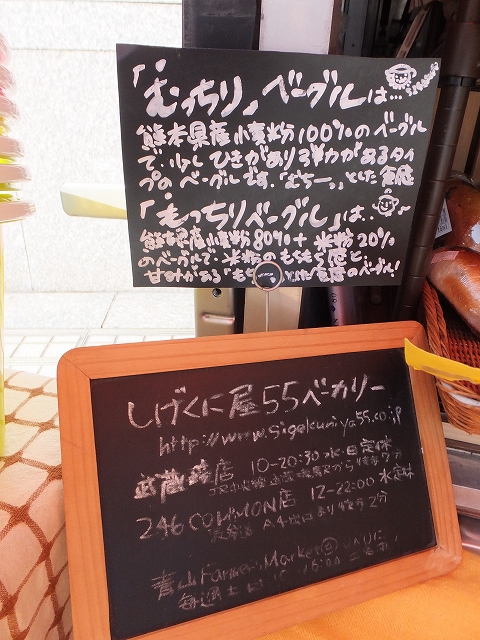 「むっちり」ベーグルは…
熊本県産小麦粉100%のベーグル
で、少しひきがあり弾力があるタイ
プのベーグルです。「むちーっ」とした食感
「もっちりベーグル」は…
熊本県産小麦粉80%+米粉20%
のベーグルで、米粉のもちもち感と、
甘みがある「もちっ」とした食感のベーグル!
しげくに屋55ベーカリー
http://www.sigekuniya55.co.jp
武蔵境店 10-20:30 水・日定休
246 COMMON店 12-22:00 水定休
表参道 A4出口より徒歩2分
青山Farmers Market@UNU
毎週土日